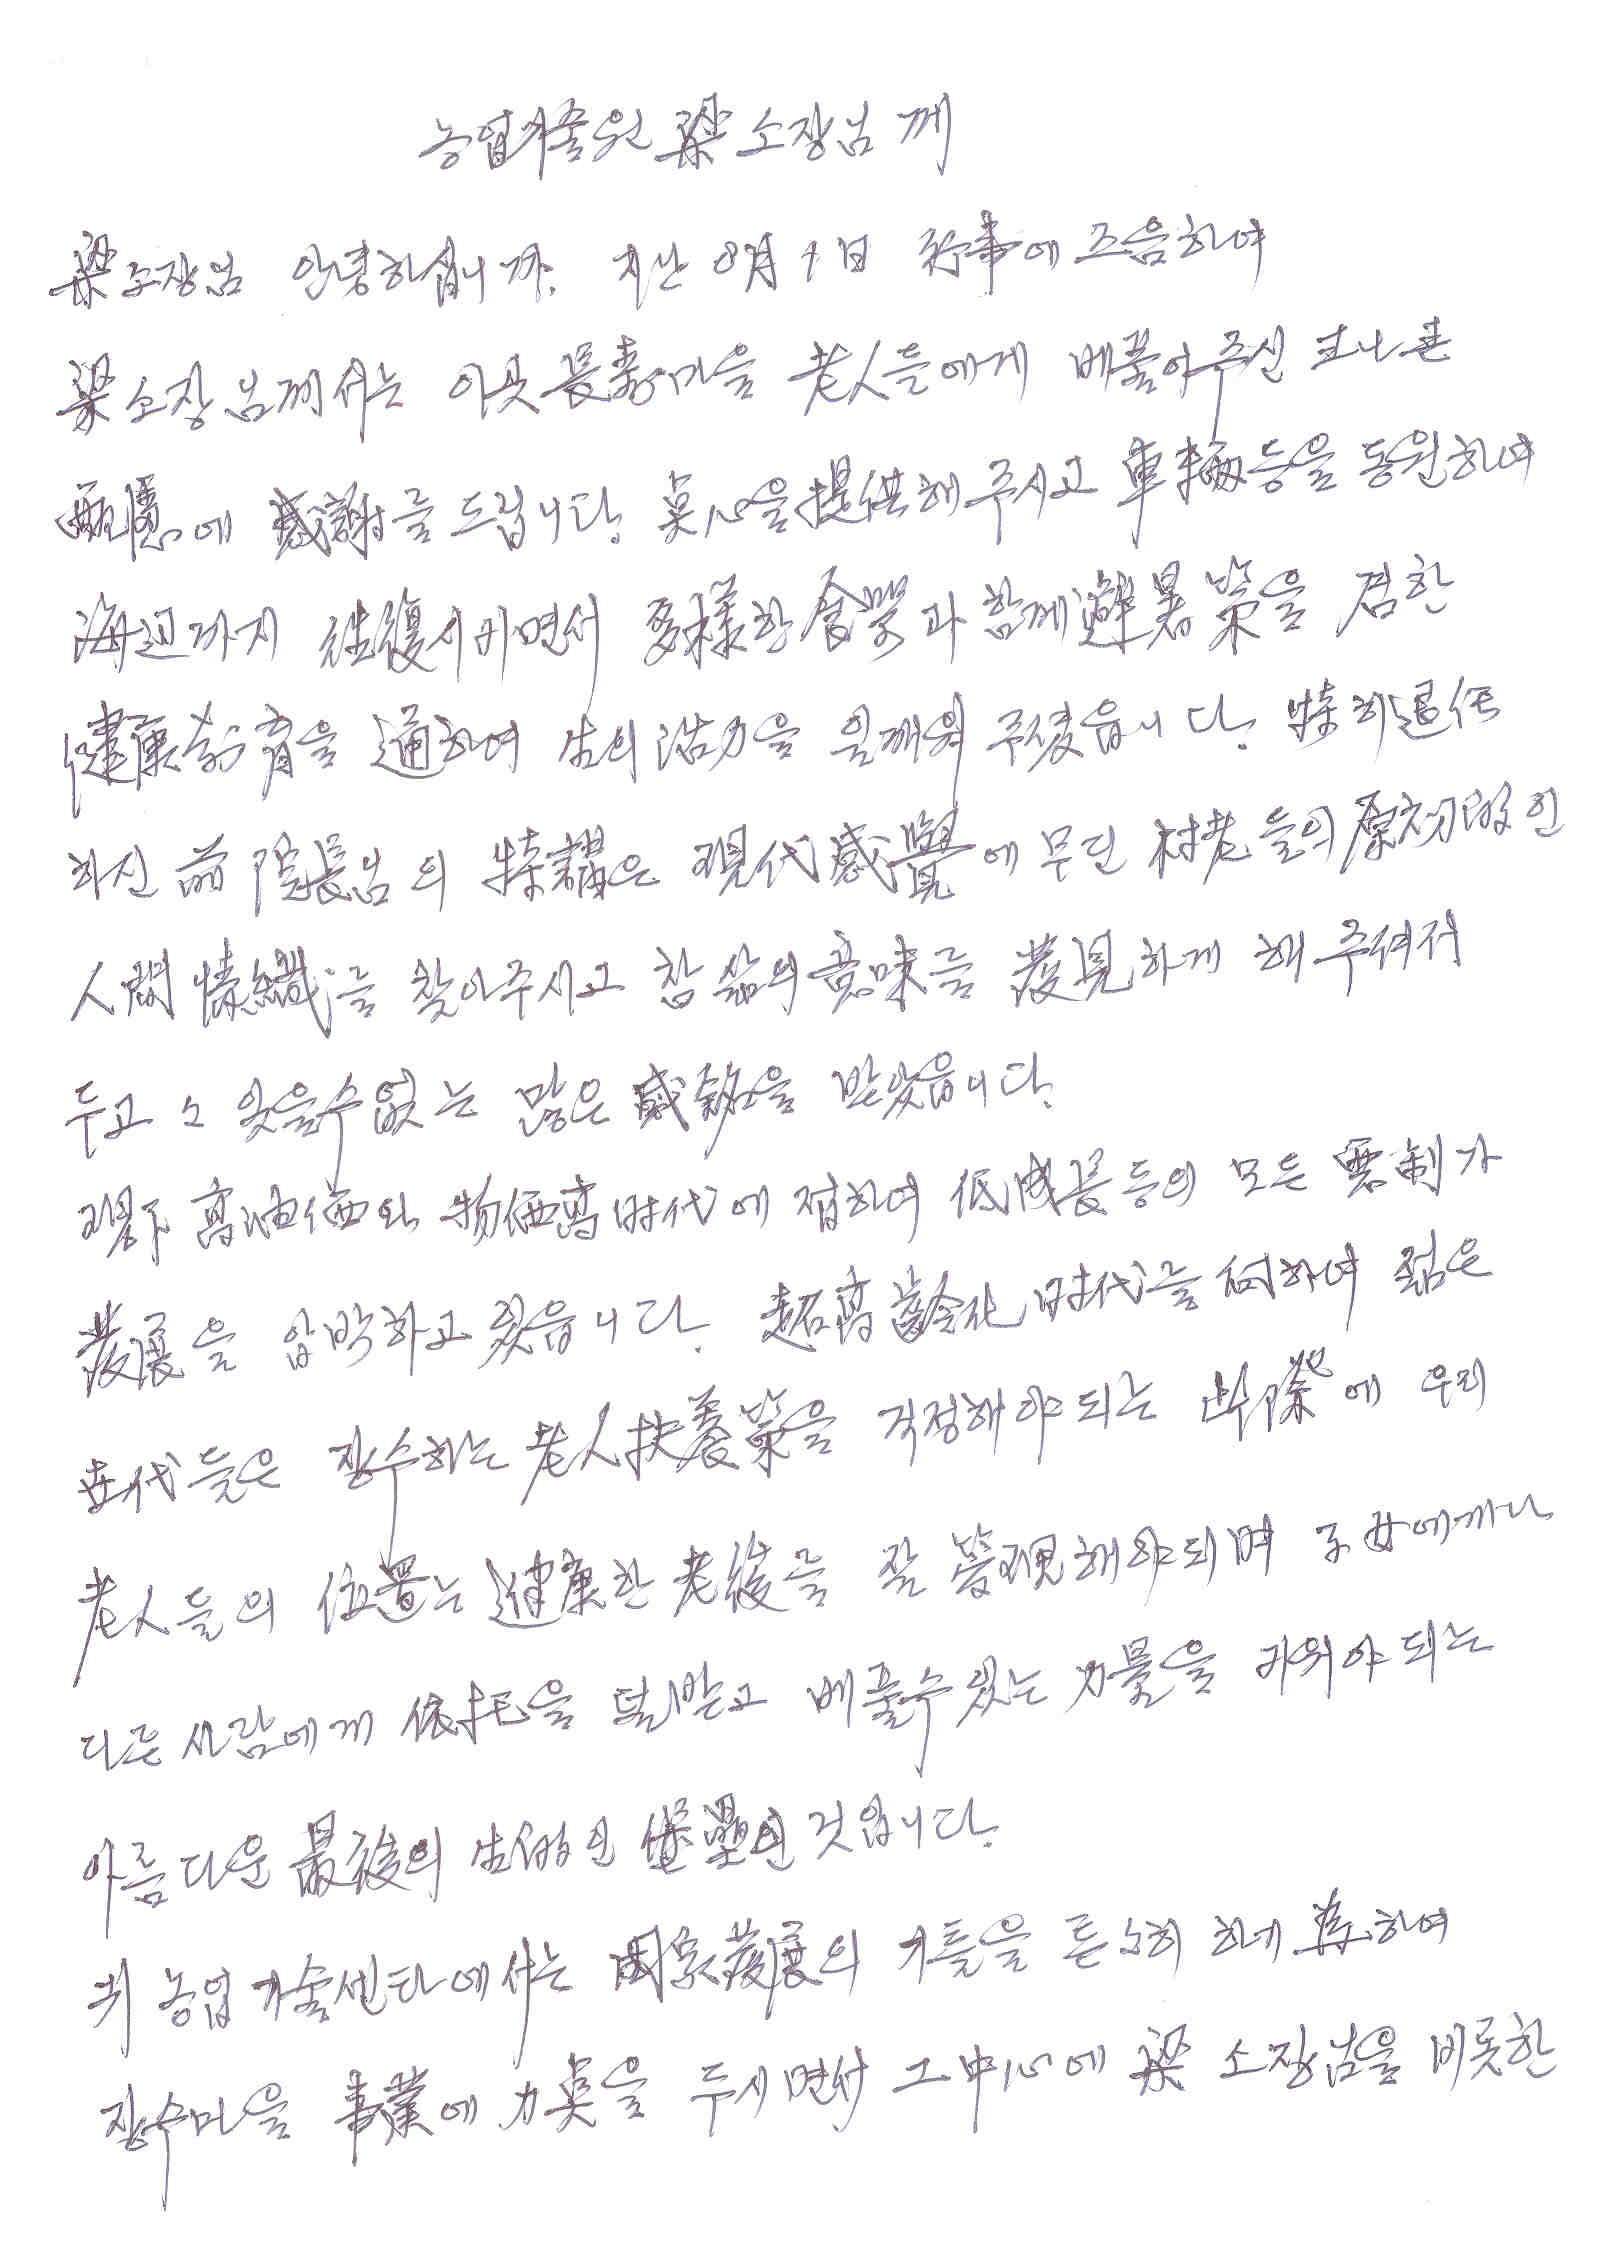 농업기술원 梁 소장님 께
梁소장님 안녕하십니까. 지난 8月 1日 行事에 즈음하여
梁소장님께서는 이곳 長壽마을 老人들에게 베풀어주신
配慮에 感謝를 드립니다. 点心을 提供해 주시고 車輛등을 동원하여
海辺까지 往復시키면서 多様한 食單과 함께 避暑策을 겸한
健康敎育을 通하여 生의 活力을 일깨워 주셨읍니다. 特히 退任
하신 前 院長님의 特講은 現代感覺에 무딘 村老들의 原初的인
人間 을 찾아주시고 참 삶의 意味를 發見하게 해 주셔서
두고 잊을수 없는 많은 感銘을 받았읍니다.
現下 高油価와 物価高 时代에 접하여 低成長등의 모든 가
發展을 압박하고 있읍니다. 超高齡化 时代를 向하여 젊은
世代들은 장수하는 老人扶養策을 걱정해야 되는 此際에 우리
老人들의 位置는 健康한 老後를 잘 管理해야 되며 子女에게나
다른 사람에게 依托을 덜 받고 베풀수 있는 力量을 키워야 되는
아름다운 最後의 生的인 堡壘인 것입니다.
귀 농업 기술센타에서는 國家發展의 기틀을 튼튼히 하여
장수마을 事業에 力点을 두시면서 그 中心에 梁 소장님을 비롯한